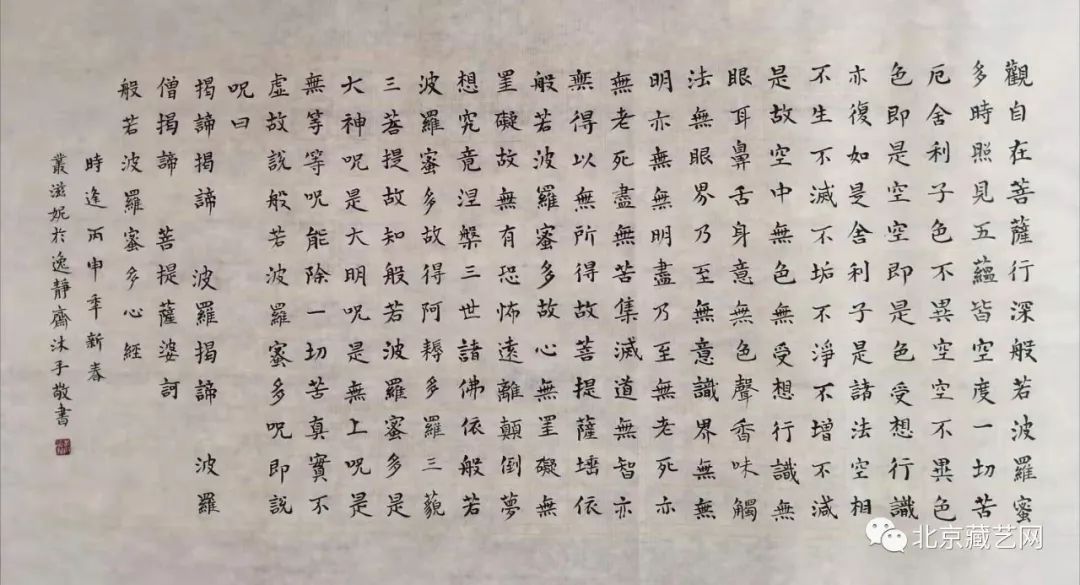 觀自在菩薩行深般若波羅蜜
多時照見五蘊皆空度一切苦
厄舍利子色不異空空不異色
色即是空空即是色受想行識
亦復如是舍利子是諸法空相
不生不滅不垢不淨不增不減
是故空中無色無受想行識無
眼耳鼻舌身意無色聲香味觸
法無眼界乃至無意識界無無
明亦無無明盡乃至無老死亦
無老死盡無苦集滅道無智亦
無得以無所得故菩提薩埵依
般若波羅蜜多故心無罣礙無
罣礙故無有恐怖遠離顛倒夢
想究竟涅槃三世諸佛依般若
波羅蜜多故得阿耨多羅三藐
三菩提故知般若波羅蜜多是
大神呪是大明呪是無上呪是
無等等呪能除一切苦真實不
虛故說般若波羅蜜多呪即說
呪曰
揭諦揭諦 波羅揭諦 波羅
僧揭諦 菩提薩婆訶
般若波羅蜜多心經
時逢丙申年新春
叢滋妮於逸靜齋沐手敬書
北京藏艺网